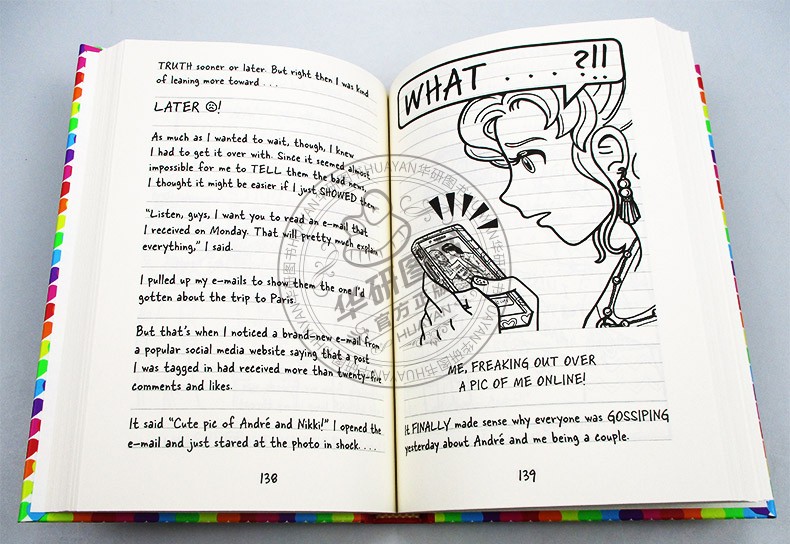 TRUTH sooner or later. But right then I was kind
of leaning more toward . . .
LATER ☹!
As much as I wanted to wait, though, I knew
I had to get it over with. Since it seemed almost
impossible for me to TELL them the bad news,
I thought it might be easier if I just SHOWED them.
"Listen, guys, I want you to read an e-mail that
I received on Monday. That will pretty much explain
everything," I said.
I pulled up my e-mails to show them the one I'd
gotten about the trip to Paris.
But that's when I noticed a brand-new e-mail from
a popular social media website saying that a post
I was tagged in had received more than twenty-five
comments and likes.
It said "Cute pic of André and Nikki!" I opened the
e-mail and just stared at the photo in shock. . . .
138
WHAT . . . . ?!!
ME, FREAKING OUT OVER
A PIC OF ME ONLINE!
It FINALLY made sense why everyone was GOSSIPING
yesterday about André and me being a couple.
139
华研图书
HUAYAN华研图书
官方正版